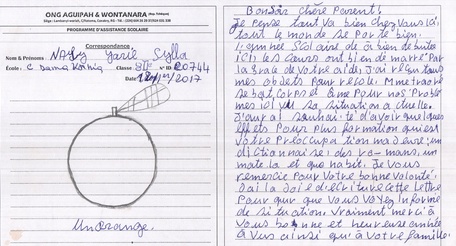 ONG AGUIPAH & WONTANARA
PROGRAMME D'ASSISTANCE SCOLAIRE
Correspondance
Nom & Prénoms Yarie Sylla
École : Classe N° ID 20744
Date 2017
Un orange.
Bonjour chère Parent!
Je pense tout va bien chez vous ici,
tout le monde se porte bien.
L'année Scolaire de à bien debuter
ici les cours ont bien demarré Par
la Grace de votre aide J'ai reçu tous
mes objets pour l'école.
se bat corps et âme Pour nos Problè
mes ici vu sa situation actuelle.
J'aurai souhaité d'avoir quelques
effets Pour plus formation qui est
votre Préoccupation majeure: un
dictionnaire; des romans, un
matela et que habit. Je vous
remercie pour votre bonne volonté.
J'ai la Joie d'ecriture cette lettre
Pour que que vous voyez informé
de situation vraiment merci à
vous bonne et heureuse année
à vous ainsi qu'à votre famille.